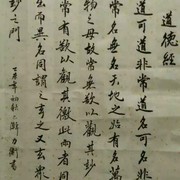 道德經
道可道非常道名可名非
常名無名天地之始有名萬
物之母故常無欲以觀其妙
常有欲以觀其徼此兩者同
出而異名同謂之玄玄之又玄眾
妙之門